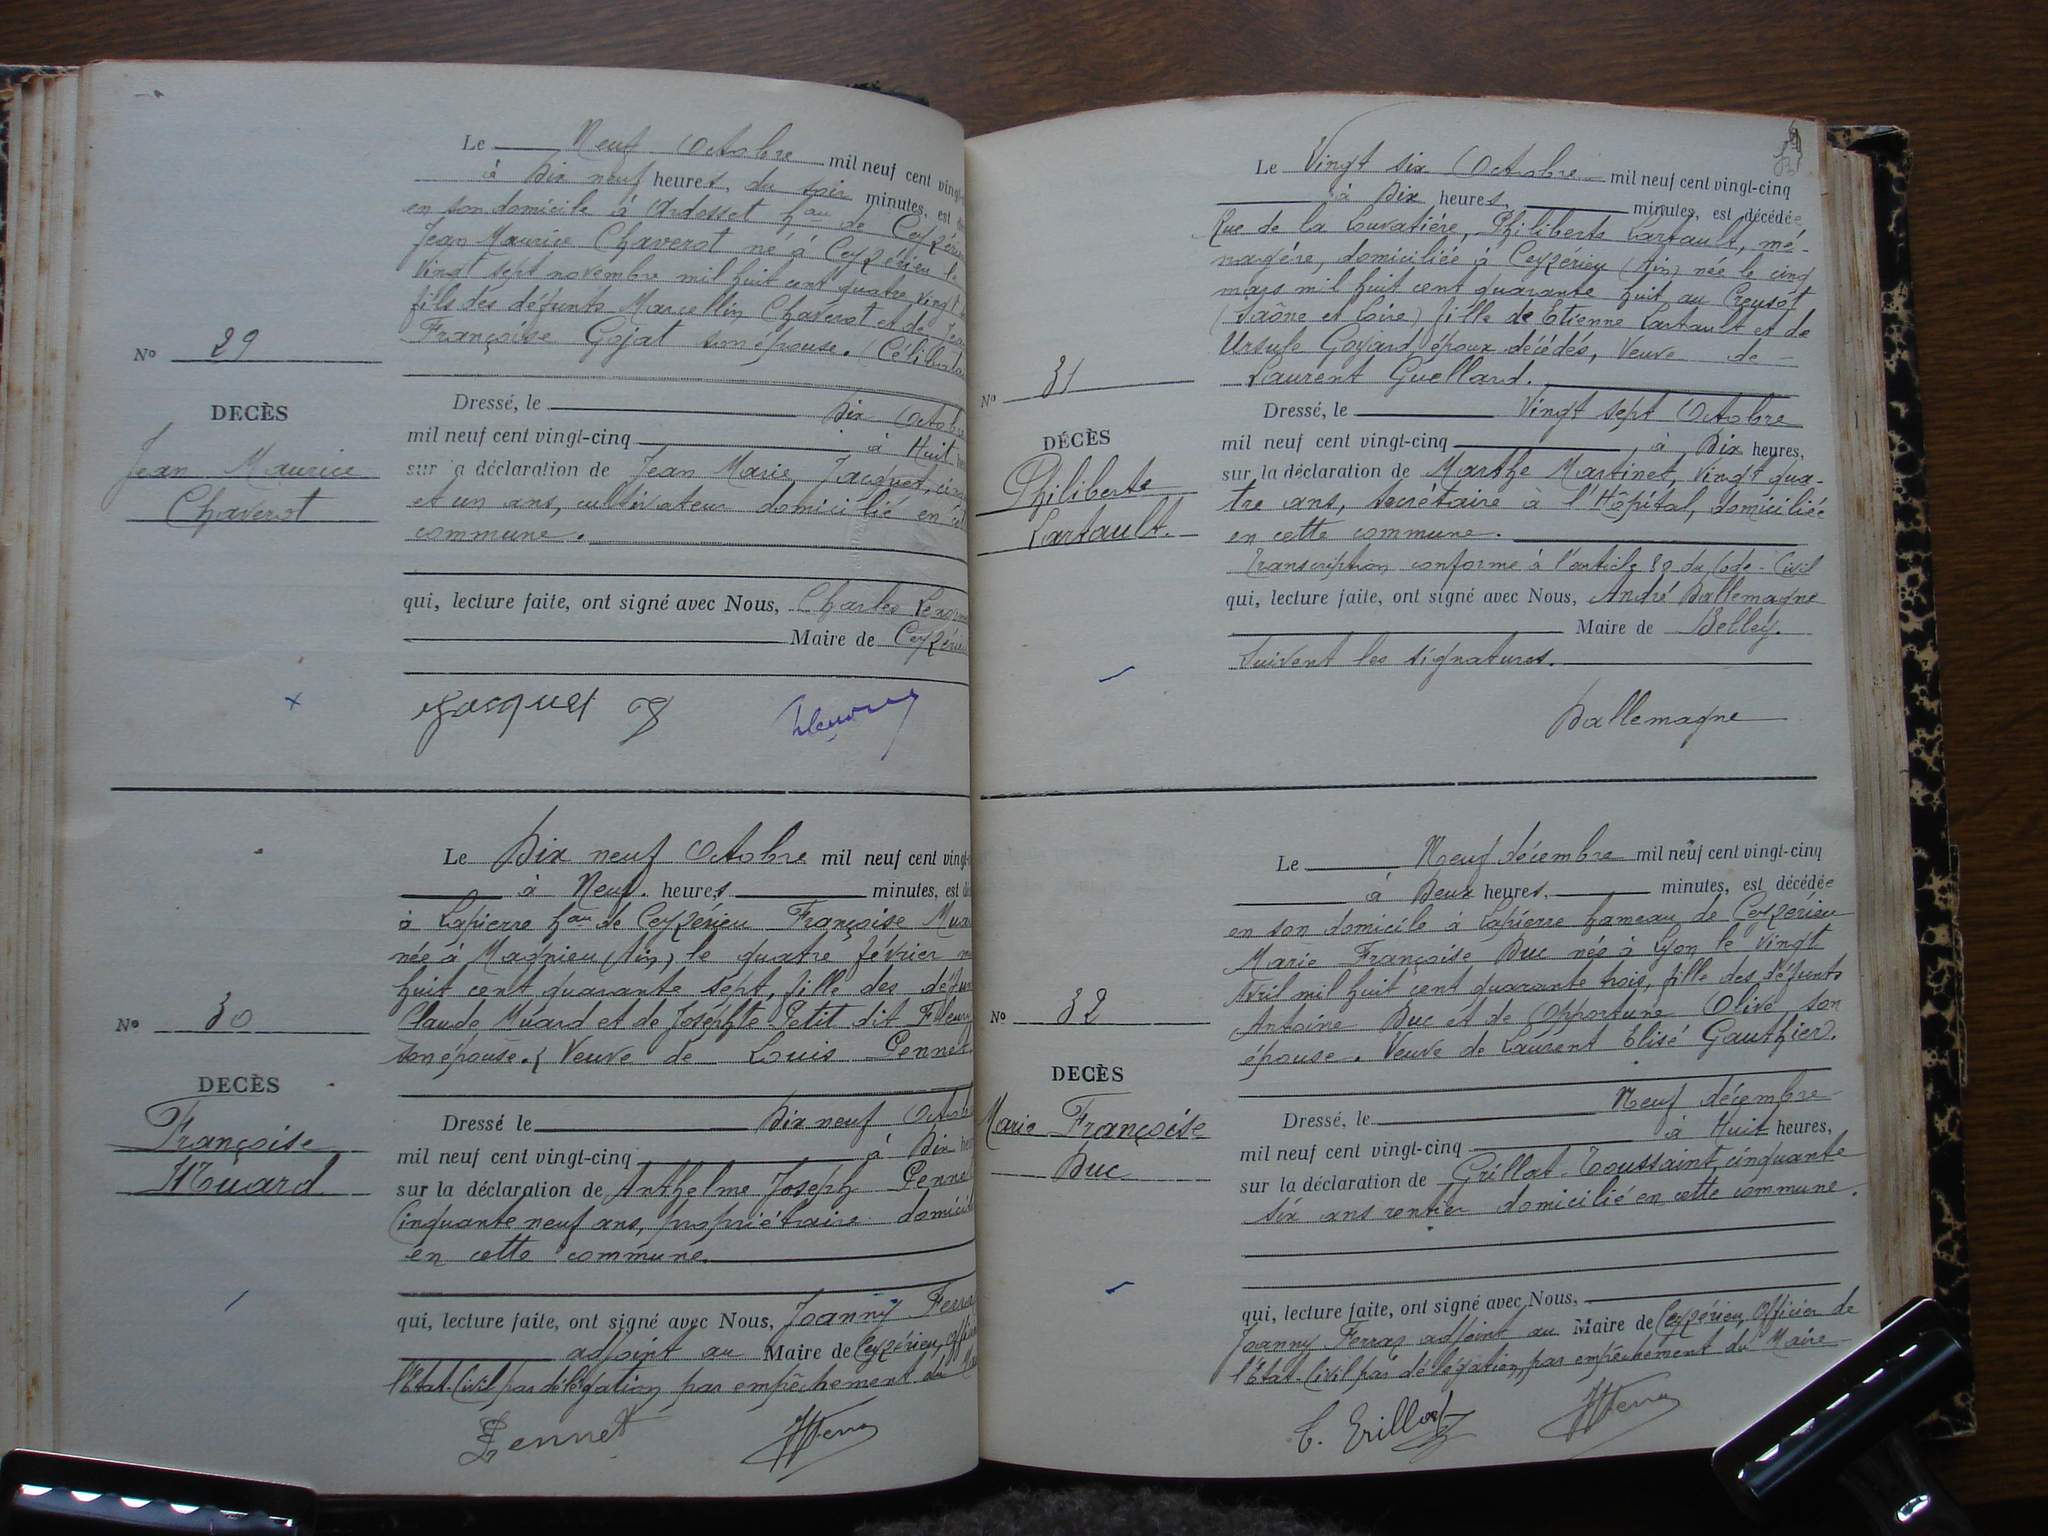 Le Neuf Octobre mil neuf cent vingt-
à Dix neuf heures, du soir minutes, est
en son domicile à Ardosset hau de Ceyzérieu
Jean Maurice Chaverot né à Ceyzérieu le
vingt sept novembre mil huit cent quatre vingt
fils des défunts Marcellin Chaverot et de
Françoise Gojat son épouse. (Célibataire
No 29
DECÈS
Jean Maurice
Chaverot
Dressé, le Dix Octobre
mil neuf cent vingt-cinq à Huit
sur la déclaration de Jean Marie Jacquet,
et un ans, cultivateur domicilié en
commune.
qui, lecture faite, ont signé avec Nous, Charles
Maire de Ceyzérieu
Jacquet
Le Dix neuf Octobre mil neuf cent vingt-
à Neuf. heures minutes, est
à Lapierre hau de Ceyzérieu Françoise
née à Magnieu (Ain) le quatre février
huit cent quarante sept, fille des
Claude Muard et de Josephte Petit dit Fleury
son épouse. Veuve de Louis Pennet.
No 30
DECÈS
Françoise
Muard
Dressé le Dix neuf Octobre
mil neuf cent vingt-cinq à Dix
sur la déclaration de Anthelme Joseph Pennet
Cinquante neuf ans, propriétaire domicilié
en cette commune.
qui, lecture faite, ont signé avec Nous, Joanny Ferraz
adjoint au Maire de Ceyzérieu, officier
l'Etat-Civil par délégation, par empêchement du
Pennet
Le Vingt six Octobre mil neuf cent vingt-cinq
à Dix heures, minutes, est décédée
Rue de la Louvatière, Philiberte Lartault, mé-
nagère, domiciliée à Ceyzerieu (Ain) née le cinq
mars mil huit cent quarante huit au Creusot
(Saône et Loire) fille de Etienne Lartault et de
Ursule Goyard, époux décédés, Veuve de
Laurent Guellard.
No 31
DÉCÈS
Philiberte
Lartault.
Dressé, le Vingt sept Octobre
mil neuf cent vingt-cinq à Dix heures,
sur la déclaration de Marthe Martinet, Vingt qua-
tre ans, secrétaire à l'Hôpital, domiciliée
en cette commune.
Transcription conforme à l'article 80 du Code-Civil
qui, lecture faite, ont signé avec Nous, André Dallemagne
Maire de Belley.
Suivent les signatures.
Dallemagne
Le Neuf décembre mil neuf cent vingt-cinq
à Deux heures, minutes, est décédée
en son domicile à Lapierre hameau de Ceyzérieu
Marie Françoise Duc née à Lyon le vingt
Avril mil huit cent quarante trois, fille des défunts
Antoine Duc et de Opportune Olive son
épouse. Veuve de Laurent Elisé Gauthier.
No 32
DECÈS
Marie Françoise
Duc
Dressé, le Neuf décembre
mil neuf cent vingt-cinq à Huit heures,
sur la déclaration de Grillat Toussaint, cinquante
six ans rentier domicilié en cette commune.
qui, lecture faite, ont signé avec Nous,
Joanny Ferraz adjoint au Maire de Ceyzérieu, Officier de
l'Etat-Civil par délégation, par empêchement du Maire